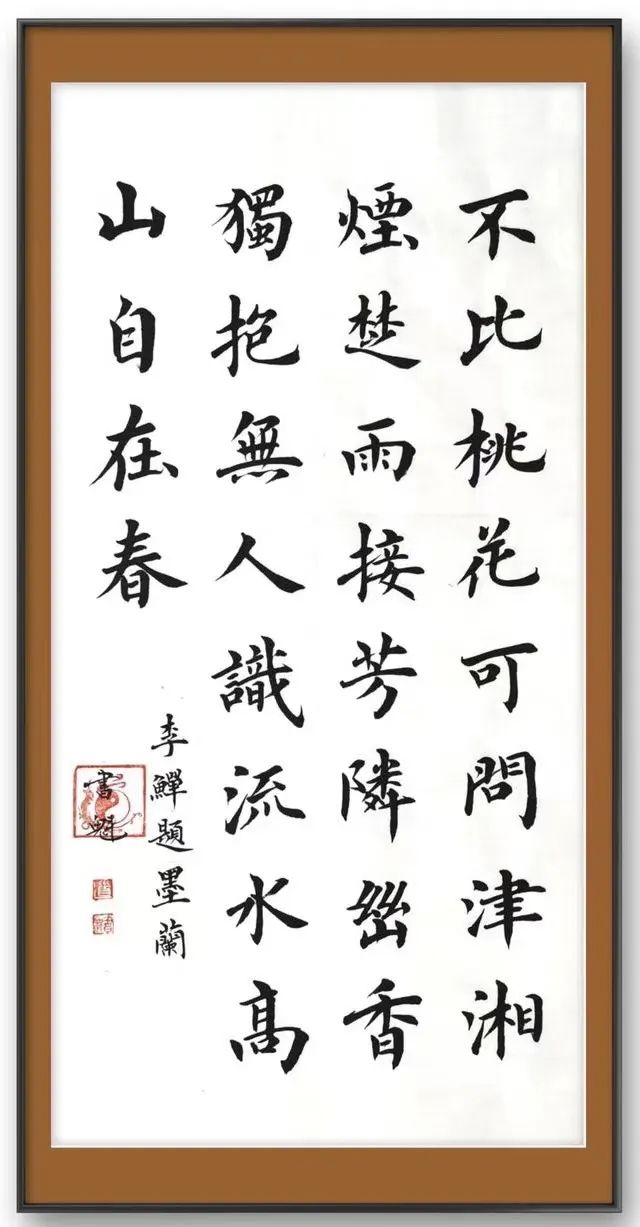 不比桃花可問津湘
煙楚雨接芳隣幽香
獨抱無人識流水高
山自在春
李鱓題墨蘭
書魁